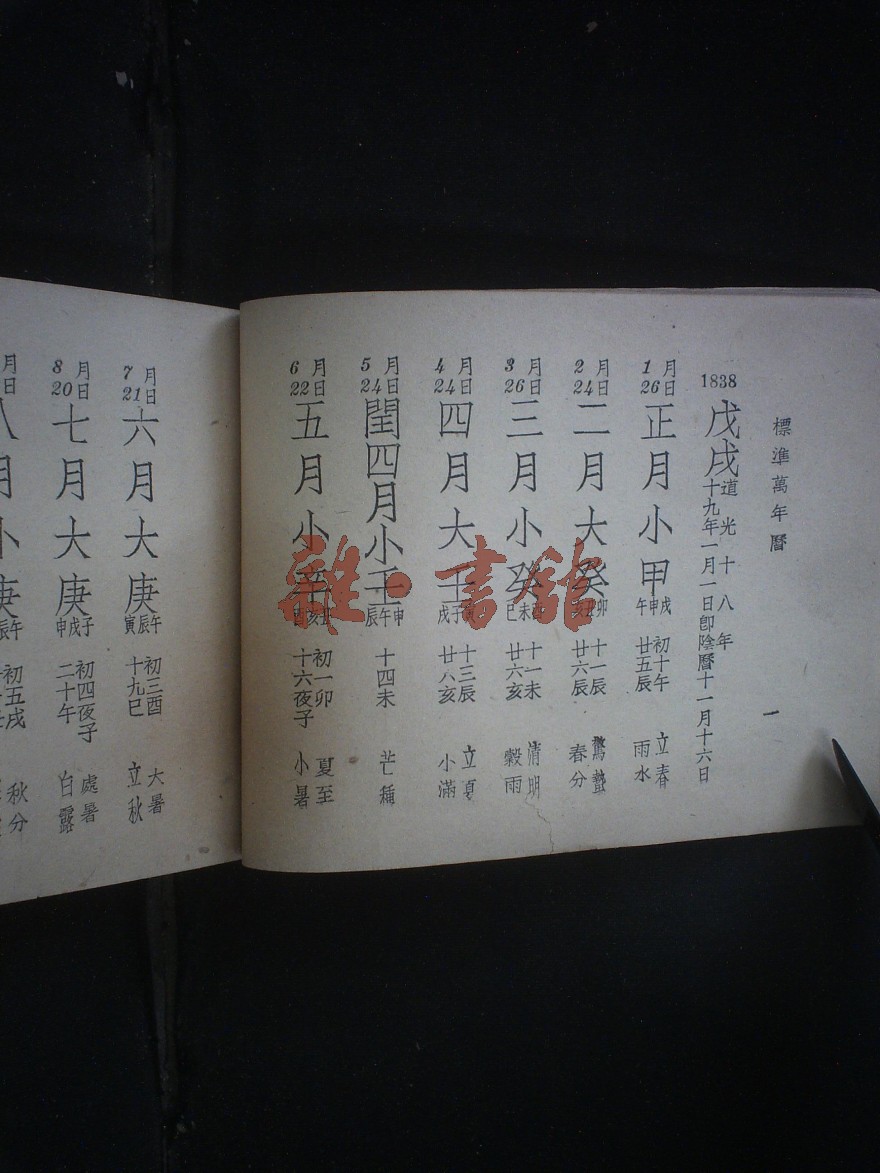 標準萬年曆
一
1838
戊戌 道光十八年
十九年一月一日卽陰曆十一月十六日
1月26日
正月小甲 戌申午
初十午 立春
廿五辰 雨水
2月24日
二月大癸 卯丑亥
十一辰 驚蟄
廿六辰 春分
3月26日
三月小癸 酉未巳
十一未 清明
廿六亥 穀雨
4月24日
四月大壬 寅子戌
十三辰 立夏
廿八亥 小滿
5月24日
閏四月小壬 申午辰
十四未 芒種
6月22日
五月小辛 丑亥酉
初一卯 夏至
十六夜子 小暑
7月21日
六月大庚 午辰寅
初三酉 大暑
十九巳 立秋
8月20日
七月大庚 子戌申
初四夜子 處暑
二十午 白露
月日
八月小庚 午辰
初五戌 秋分
雜·書館